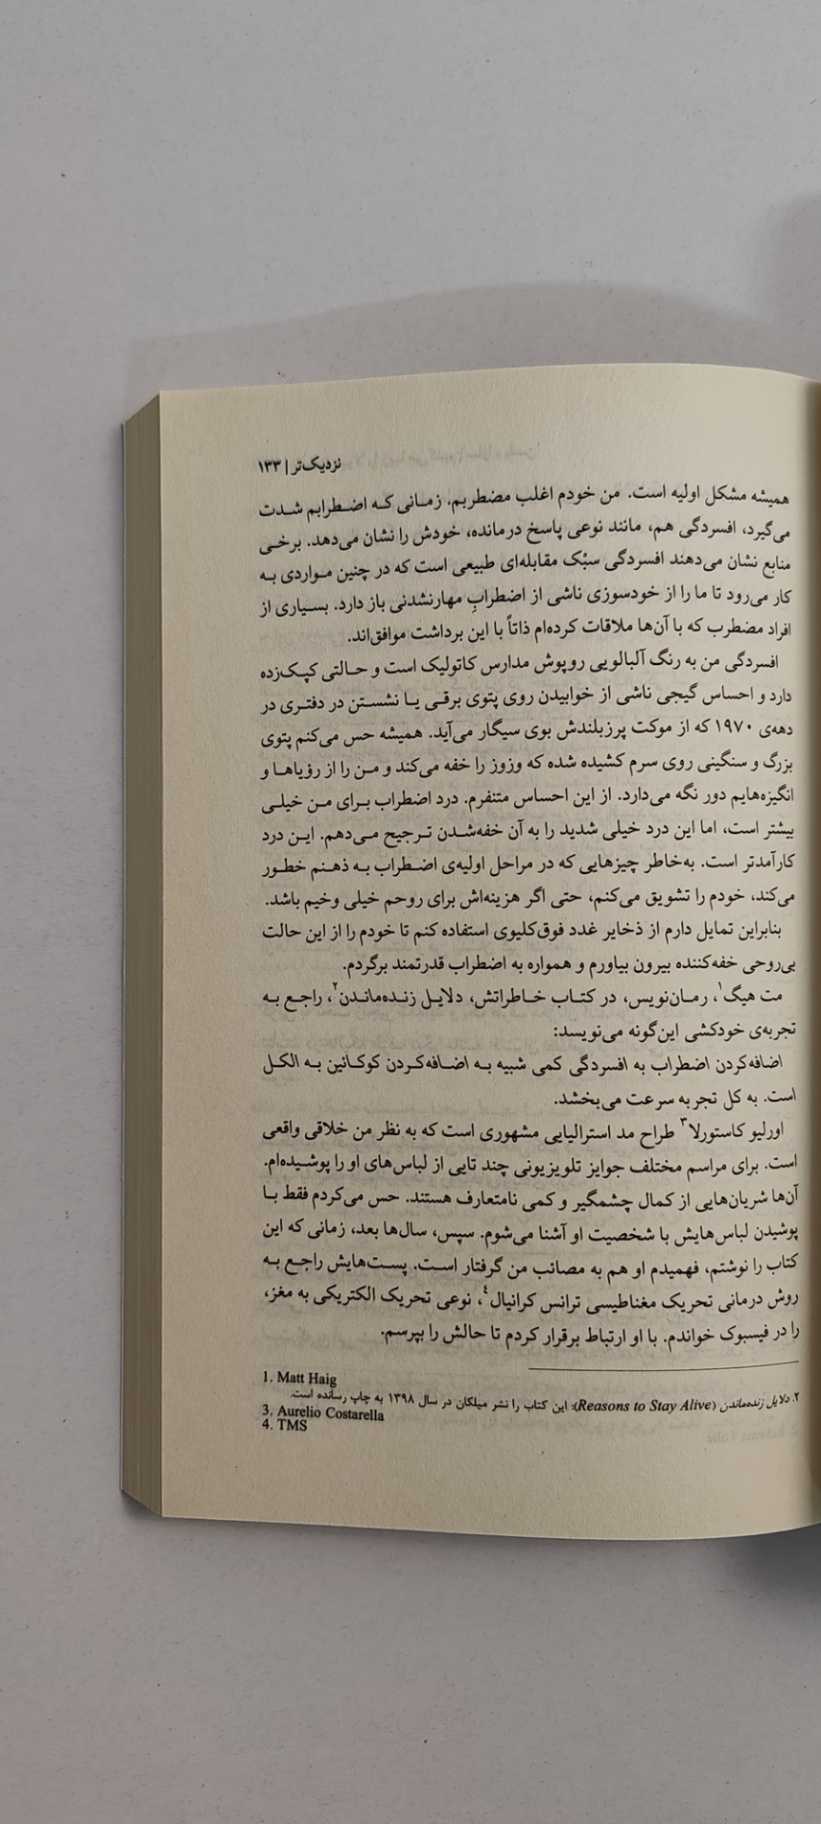 نزدیک‌تر | ۱۳۳
همیشه مشکل اولیه است. من خودم اغلب مضطربم. زمانی که اضطرابم شدت
می‌گیرد، افسردگی هم، مانند نوعی پاسخ درمانده، خودش را نشان می‌دهد. برخی
منابع نشان می‌دهند افسردگی سبْک مقابله‌ای طبیعی است که در چنین مواردی به
کار می‌رود تا ما را از خودسوزی ناشی از اضطرابِ مهارنشدنی باز دارد. بسیاری از
افراد مضطرب که با آن‌ها ملاقات کرده‌ام ذاتاً با این برداشت موافق‌اند.
افسردگی من به رنگ آلبالویی روپوش مدارس کاتولیک است و حالتی کپک‌زده
دارد و احساس گیجی ناشی از خوابیدن روی پتوی برقی یا نشستن در دفتری در
دهه‌ی ۱۹۷۰ که از موکت پرزبلندش بوی سیگار می‌آید. همیشه حس می‌کنم پتوی
بزرگ و سنگینی روی سرم کشیده شده که وزوز را خفه می‌کند و من را از رؤیاها و
انگیزه‌هایم دور نگه می‌دارد. از این احساس متنفرم. درد اضطراب برای من خیلی
بیشتر است، اما این درد خیلی شدید را به آن خفه‌شدن ترجیح می‌دهم. این درد
کارآمدتر است. به‌خاطر چیزهایی که در مراحل اولیه‌ی اضطراب به ذهنم خطور
می‌کند، خودم را تشویق می‌کنم، حتی اگر هزینه‌اش برای روحم خیلی وخیم باشد.
بنابراین تمایل دارم از ذخایر غدد فوق‌کلیوی استفاده کنم تا خودم را از این حالت
بی‌روحی خفه‌کننده بیرون بیاورم و همواره به اضطراب قدرتمند برگردم.
مت هیگ۱، رمان‌نویس، در کتاب خاطراتش، دلایل زنده‌ماندن۲، راجع به
تجربه‌ی خودکشی این‌گونه می‌نویسد:
اضافه‌کردن اضطراب به افسردگی کمی شبیه به اضافه‌کردن کوکائین به الکل
است. به کل تجربه سرعت می‌بخشد.
اورلیو کاستورلا۳ طراح مد استرالیایی مشهوری است که به نظر من خلاقی واقعی
است. برای مراسم مختلف جوایز تلویزیونی چند تایی از لباس‌های او را پوشیده‌ام.
آن‌ها شریان‌هایی از کمال چشمگیر و کمی نامتعارف هستند. حس می‌کردم فقط با
پوشیدن لباس‌هایش با شخصیت او آشنا می‌شوم. سپس، سال‌ها بعد، زمانی که این
کتاب را نوشتم، فهمیدم او هم به مصائب من گرفتار است. پست‌هایش راجع به
روش درمانی تحریک مغناطیسی ترانس کرانیال۴، نوعی تحریک الکتریکی به مغز،
را در فیسبوک خواندم. با او ارتباط برقرار کردم تا حالش را بپرسم.
1. Matt Haig
۲. دلایل زنده‌ماندن (Reasons to Stay Alive)؛ این کتاب را نشر میلکان در سال ۱۳۹۸ به چاپ رسانده است.
3. Aurelio Costarella
4. TMS